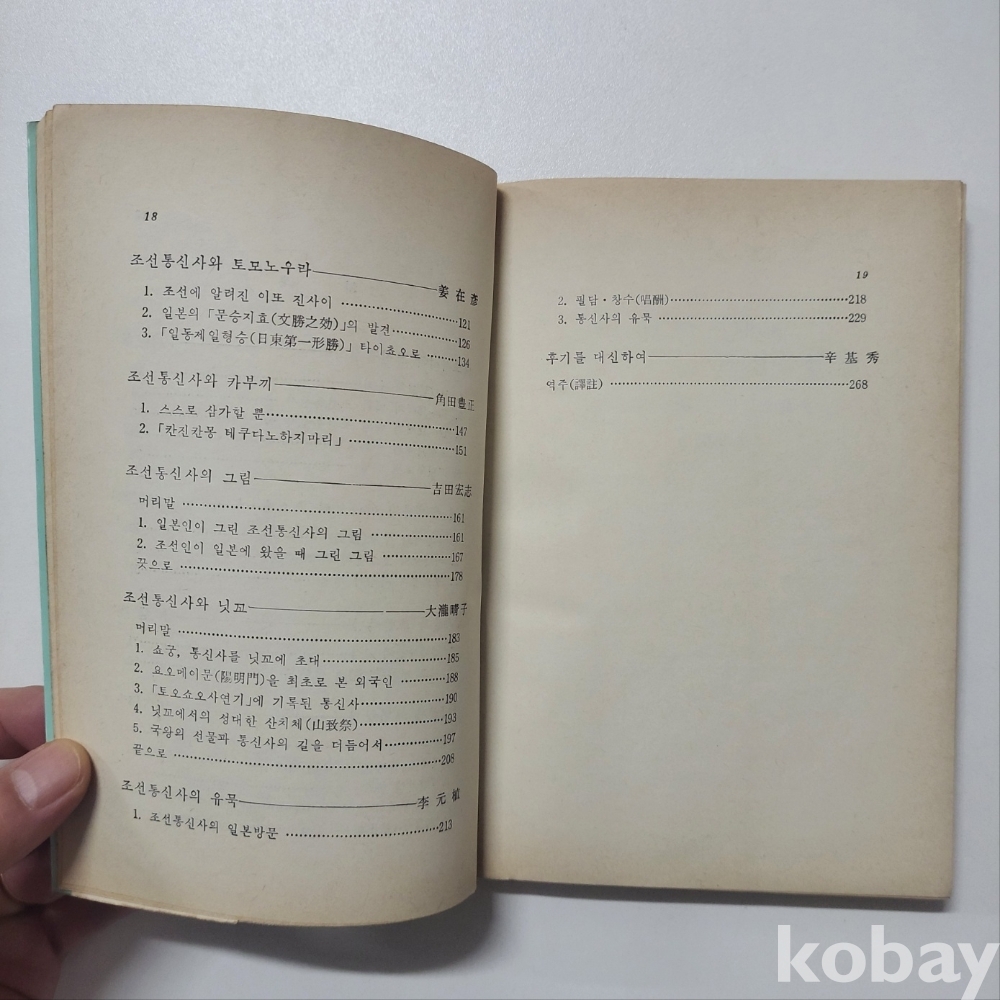 18
조선통신사와 토모노우라 姜在彦
1. 조선에 알려진 이또 진사이 121
2. 일본의 「문승지효(文勝之効)」의 발견 126
3. 「일동제일형승(日東第一形勝)」 타이쵸오로 134
조선통신사와 카부끼 角田豊正
1. 스스로 삼가할 뿐 147
2. 「칸진칸몽 테쿠다노하지마리」 151
조선통신사의 그림 吉田宏志
머리말 161
1. 일본인이 그린 조선통신사의 그림 161
2. 조선인이 일본에 왔을 때 그린 그림 167
끗으로 178
조선통신사와 닛꼬 大瀧晴子
머리말 183
1. 쇼궁, 통신사를 닛꼬에 초대 185
2. 요오메이문(陽明門)을 최초로 본 외국인 188
3. 「토오쇼오사연기」에 기록된 통신사 190
4. 닛꼬에서의 성대한 산치체(山致祭) 193
5. 국왕의 선물과 통신사의 길을 더듬어서 197
끝으로 208
조선통신사의 유묵 李元植
1. 조선통신사의 일본방문 213
19
2. 필담·창수(唱酬) 218
3. 통신사의 유묵 229
후기를 대신하여 辛基秀
역주(譯註) 268
kobay